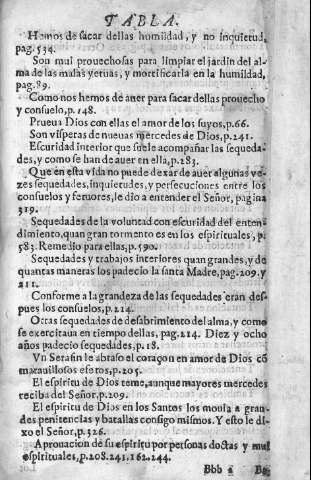 TABLA.
Hemos de sacar dellas humildad, y no inquietud,
pag.534.
Son mui prouechosas para limpiar el jardin del al-
ma de las malas yeruas, y mortificarla en la humildad,
pag.89.
Como nos hemos de auer para sacar dellas prouecho
y consuelo, p.148.
Prueua Dios con ellas el amor de los suyos, p.66.
Son visperas de nueuas mercedes de Dios, p.241.
Escuridad interior que suele acompañar las sequeda-
des, y como se han de auer en ella, p.283.
Que en esta vida no puede dexar de auer algunas ve-
zes sequedades, inquietudes, y persecuciones entre los
consuelos y feruores, le dio a entender el Señor, pagina
319.
Sequedades de la voluntad con escuridad del enten-
dimiento, quan gran tormento es en los espirituales, p.
583. Remedio para ellas, p.590.
Sequedades y trabajos interiores quan grandes, y de
quantas maneras los padecio la santa Madre, pag.209. y
211.
Conforme a la grandeza de las sequedades eran des-
pues los consuelos, p.214.
Otras sequedades de desabrimiento del alma, y como
se exercitaua en tiempo dellas, pag.214. Diez y ocho
años padecio sequedades, p.18.
Vn Serafin le abraso el coraçon en amor de Dios cō
marauillosos efetos, p.205.
El espiritu de Dios teme, aunque mayores mercedes
reciba del Señor, p.209.
El espiritu de Dios en los Santos los mouia a gran-
des penitencias y batallas consigo mismos. Y esto le di-
xo el Señor, p.326.
Aprouacion de su espiritu por personas doctas y mui
espirituales, p.208.241.162.244.
Bbb 2